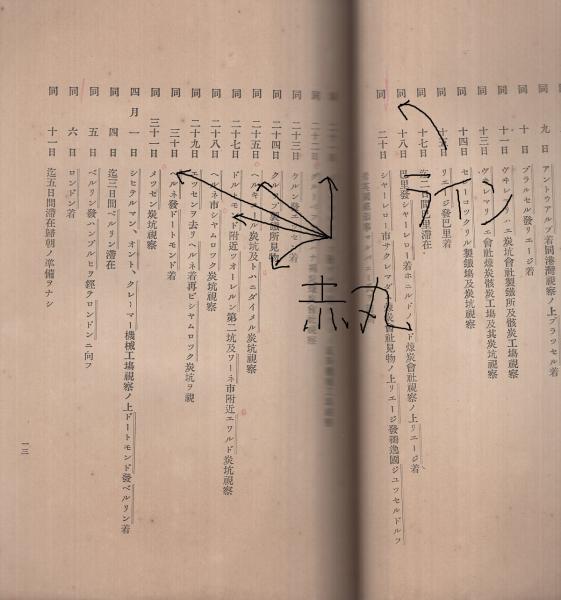 九日 アントウアルプ着同港灣視察ノ上ブラツセル着
同 十日 ブラルセル發リエージ着
同 十一日 炭坑會社製鐵所及骸炭工塲視察
同 十三日 會社煉炭骸炭工塲及其炭坑視察
同 十四日 セ コツクリル製鐵塲及炭坑視察
同 日 リエージ發巴里着
同 十七日 迄二 日間巴里滯在
同 十八日 巴里發シヤーレロー着ホニルドノード煉炭會社視察ノ上リエージ着
同 二十日 シヤーレロー市サクレマダ 炭會社見物ノ上リエージ發獨逸國ジユツセルドルフ
ライン
赤丸
同 二十三日 クルン發エツセン着
同 二十四日 クルツプ製鐵所見物
同 二十五日 ヘルキユール炭坑及トハニダイメル炭坑視察
同 二十七日 ドルトモンド附近ツオーレルン第二坑及ワーネ市附近エワルド炭坑視察
同 二十八日 ヘルネ市シヤムロツク炭坑視察
同 二十九日 エツセンヲ去リヘルネ着再ビシヤムロツク炭坑ヲ視
同 三十日 ヘルネ發ドートモンド着
同 三十一日 メツゼン炭坑視察
四月一日 シヒテルマン、オント、クレーマー機械工塲視察ノ上ドートモンド發ベルリン着
同 四日 迄三日間ベルリン滯在
同 五日 ベルリン發ハンブルヒヲ經テロンドンニ向フ
同 六日 ロンドン着
同 十一日 迄五日間滯在歸朝ノ準備ヲナシ
一三